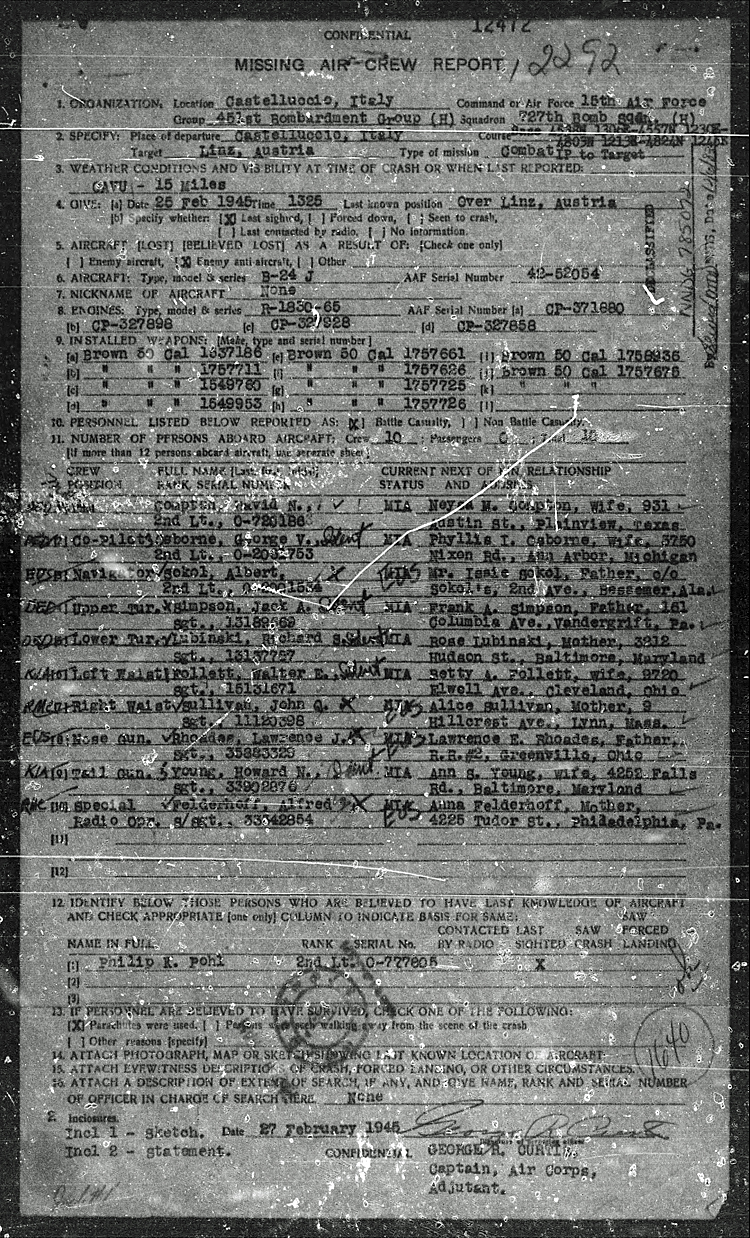 12472
CONFIDENTIAL
MISSING AIR CREW REPORT 12292
1. ORGANIZATION: Location Castelluccio, Italy Command or Air Force 15th Air Force
Group 451st Bombardment Group (H) Squadron 727th Bomb Sqdn. (H)
2. SPECIFY: Place of departure Castelluccio, Italy Course
4809N 1213E-4824N 1245E
Target Linz, Austria Type of mission Combat IP to Target
3. WEATHER CONDITIONS AND VISIBILITY AT TIME OF CRASH OR WHEN LAST REPORTED:
CAVU - 15 Miles
4. GIVE: [a] Date 25 Feb 1945 Time 1325 Last known position Over Linz, Austria
[b] Specify whether: [X] Last sighted, [ ] Forced down, [ ] Seen to crash,
[ ] Last contacted by radio, [ ] No information.
5. AIRCRAFT [LOST] [BELIEVED LOST] AS A RESULT OF: [Check one only]
[ ] Enemy aircraft, [X] Enemy anti-aircraft, [ ] Other
6. AIRCRAFT: Type, model & series B-24 J AAF Serial Number 42-52054
7. NICKNAME OF AIRCRAFT None
8. ENGINES: Type, model & series R-1830-65 AAF Serial Number [a] CP-371880
[b] CP-327898 [c] CP-327928 [d] CP-327858
9. INSTALLED WEAPONS: [Make, type and serial number]
[a] Brown 50 Cal 1337186 [e] Brown 50 Cal 1757661 [i] Brown 50 Cal 1758936
[b] " " " 1757711 [f] " " 1757626 [j] Brown 50 Cal 1757675
[c] " " " 1549780 [g] " " 1757725 [k] " " "
[d] " " " 1549953 [h] " " 1757726 [l]
10. PERSONNEL LISTED BELOW REPORTED AS: [X] Battle Casualty, [ ] Non Battle Casualty
11. NUMBER OF PERSONS ABOARD AIRCRAFT: Crew 10 ; Passengers 0 ; Total 10
[If more than 12 persons aboard aircraft, use separate sheet]
CREW FULL NAME CURRENT NEXT OF KIN RELATIONSHIP
POSITION RANK SERIAL NUMBER STATUS AND ADDRESS
Compton, David N., MIA Neyra M. Compton, Wife, 931
2nd Lt., O-720186 Austin St., Plainview, Texas
Co-Pilot Osborne, George V., MIA Phyllis I. Osborne, Wife, 3750
2nd Lt., Nixon Rd., Ann Arbor, Michigan
EUS Navigator Sokol, Albert, EUS Mr. Issie Sokol, Father, c/o
2nd Lt., Sokol's, 2nd Ave., Bessemer, Ala.
DED Upper Tur. Simpson, Jack A. MIA Frank A. Simpson, Father, 161
Sgt., 13189569 Columbia Ave., Vandergrift, Pa.
DED Lower Tur. Lubinski, Richard S. MIA Rose Lubinski, Mother, 3812
Sgt., 13137797 Hudson St., Baltimore, Maryland
KIA Left Waist Follett, Walter E. MIA Betty A. Follett, Wife, 9720
Sgt., 15131671 Elwell Ave., Cleveland, Ohio
RMC Right Waist Sullivan, John Q. MIA Alice Sullivan, Mother, 9
Sgt., 11120398 EUS Hillcrest Ave., Lynn, Mass.
EUS Nose Gun. Rhoades, Lawrence J. MIA Lawrence E. Rhoades, Father,
Sgt., 35883329 EUS R.R.#2, Greenville, Ohio
KIA Tail Gun. Young, Howard N., MIA Ann S. Young, Wife, 4252 Falls
Sgt., 33902876 Rd., Baltimore, Maryland
RMC [10] Special Felderhoff, Alfred MIA Anna Felderhoff, Mother,
Radio Opr. S/Sgt., 33342854 EUS 4225 Tudor St., Philadelphia, Pa.
[11]
[12]
12. IDENTIFY BELOW THOSE PERSONS WHO ARE BELIEVED TO HAVE LAST KNOWLEDGE OF AIRCRAFT
AND CHECK APPROPRIATE [one only] COLUMN TO INDICATE BASIS FOR SAME:
CONTACTED LAST SAW SAW FORCED
NAME IN FULL RANK SERIAL No. BY RADIO SIGHTED CRASH LANDING
[1] Philip R. Pohl 2nd Lt. O-777805 X
[2]
[3]
13. IF PERSONNEL ARE BELIEVED TO HAVE SURVIVED, CHECK ONE OF THE FOLLOWING:
[X] Parachutes were used. [ ] Persons were seen walking away from the scene of the crash
[ ] Other reasons [specify]
14. ATTACH PHOTOGRAPH, MAP OR SKETCH SHOWING LAST KNOWN LOCATION OF AIRCRAFT:
15. ATTACH EYEWITNESS DESCRIPTIONS OF CRASH, FORCED LANDING, OR OTHER CIRCUMSTANCES.
16. ATTACH A DESCRIPTION OF EXTENT OF SEARCH, IF ANY, AND GIVE NAME, RANK AND SERIAL NUMBER
OF OFFICER IN CHARGE OF SEARCH HERE. None
1640
2 Inclosures.
Incl 1 - Sketch. Date 27 February 1945
Incl 2 - statement. CONFIDENTIAL GEORGE R. CURTIN,
Captain, Air Corps,
Adjutant.
DECLASSIFIED
NNDG 785072